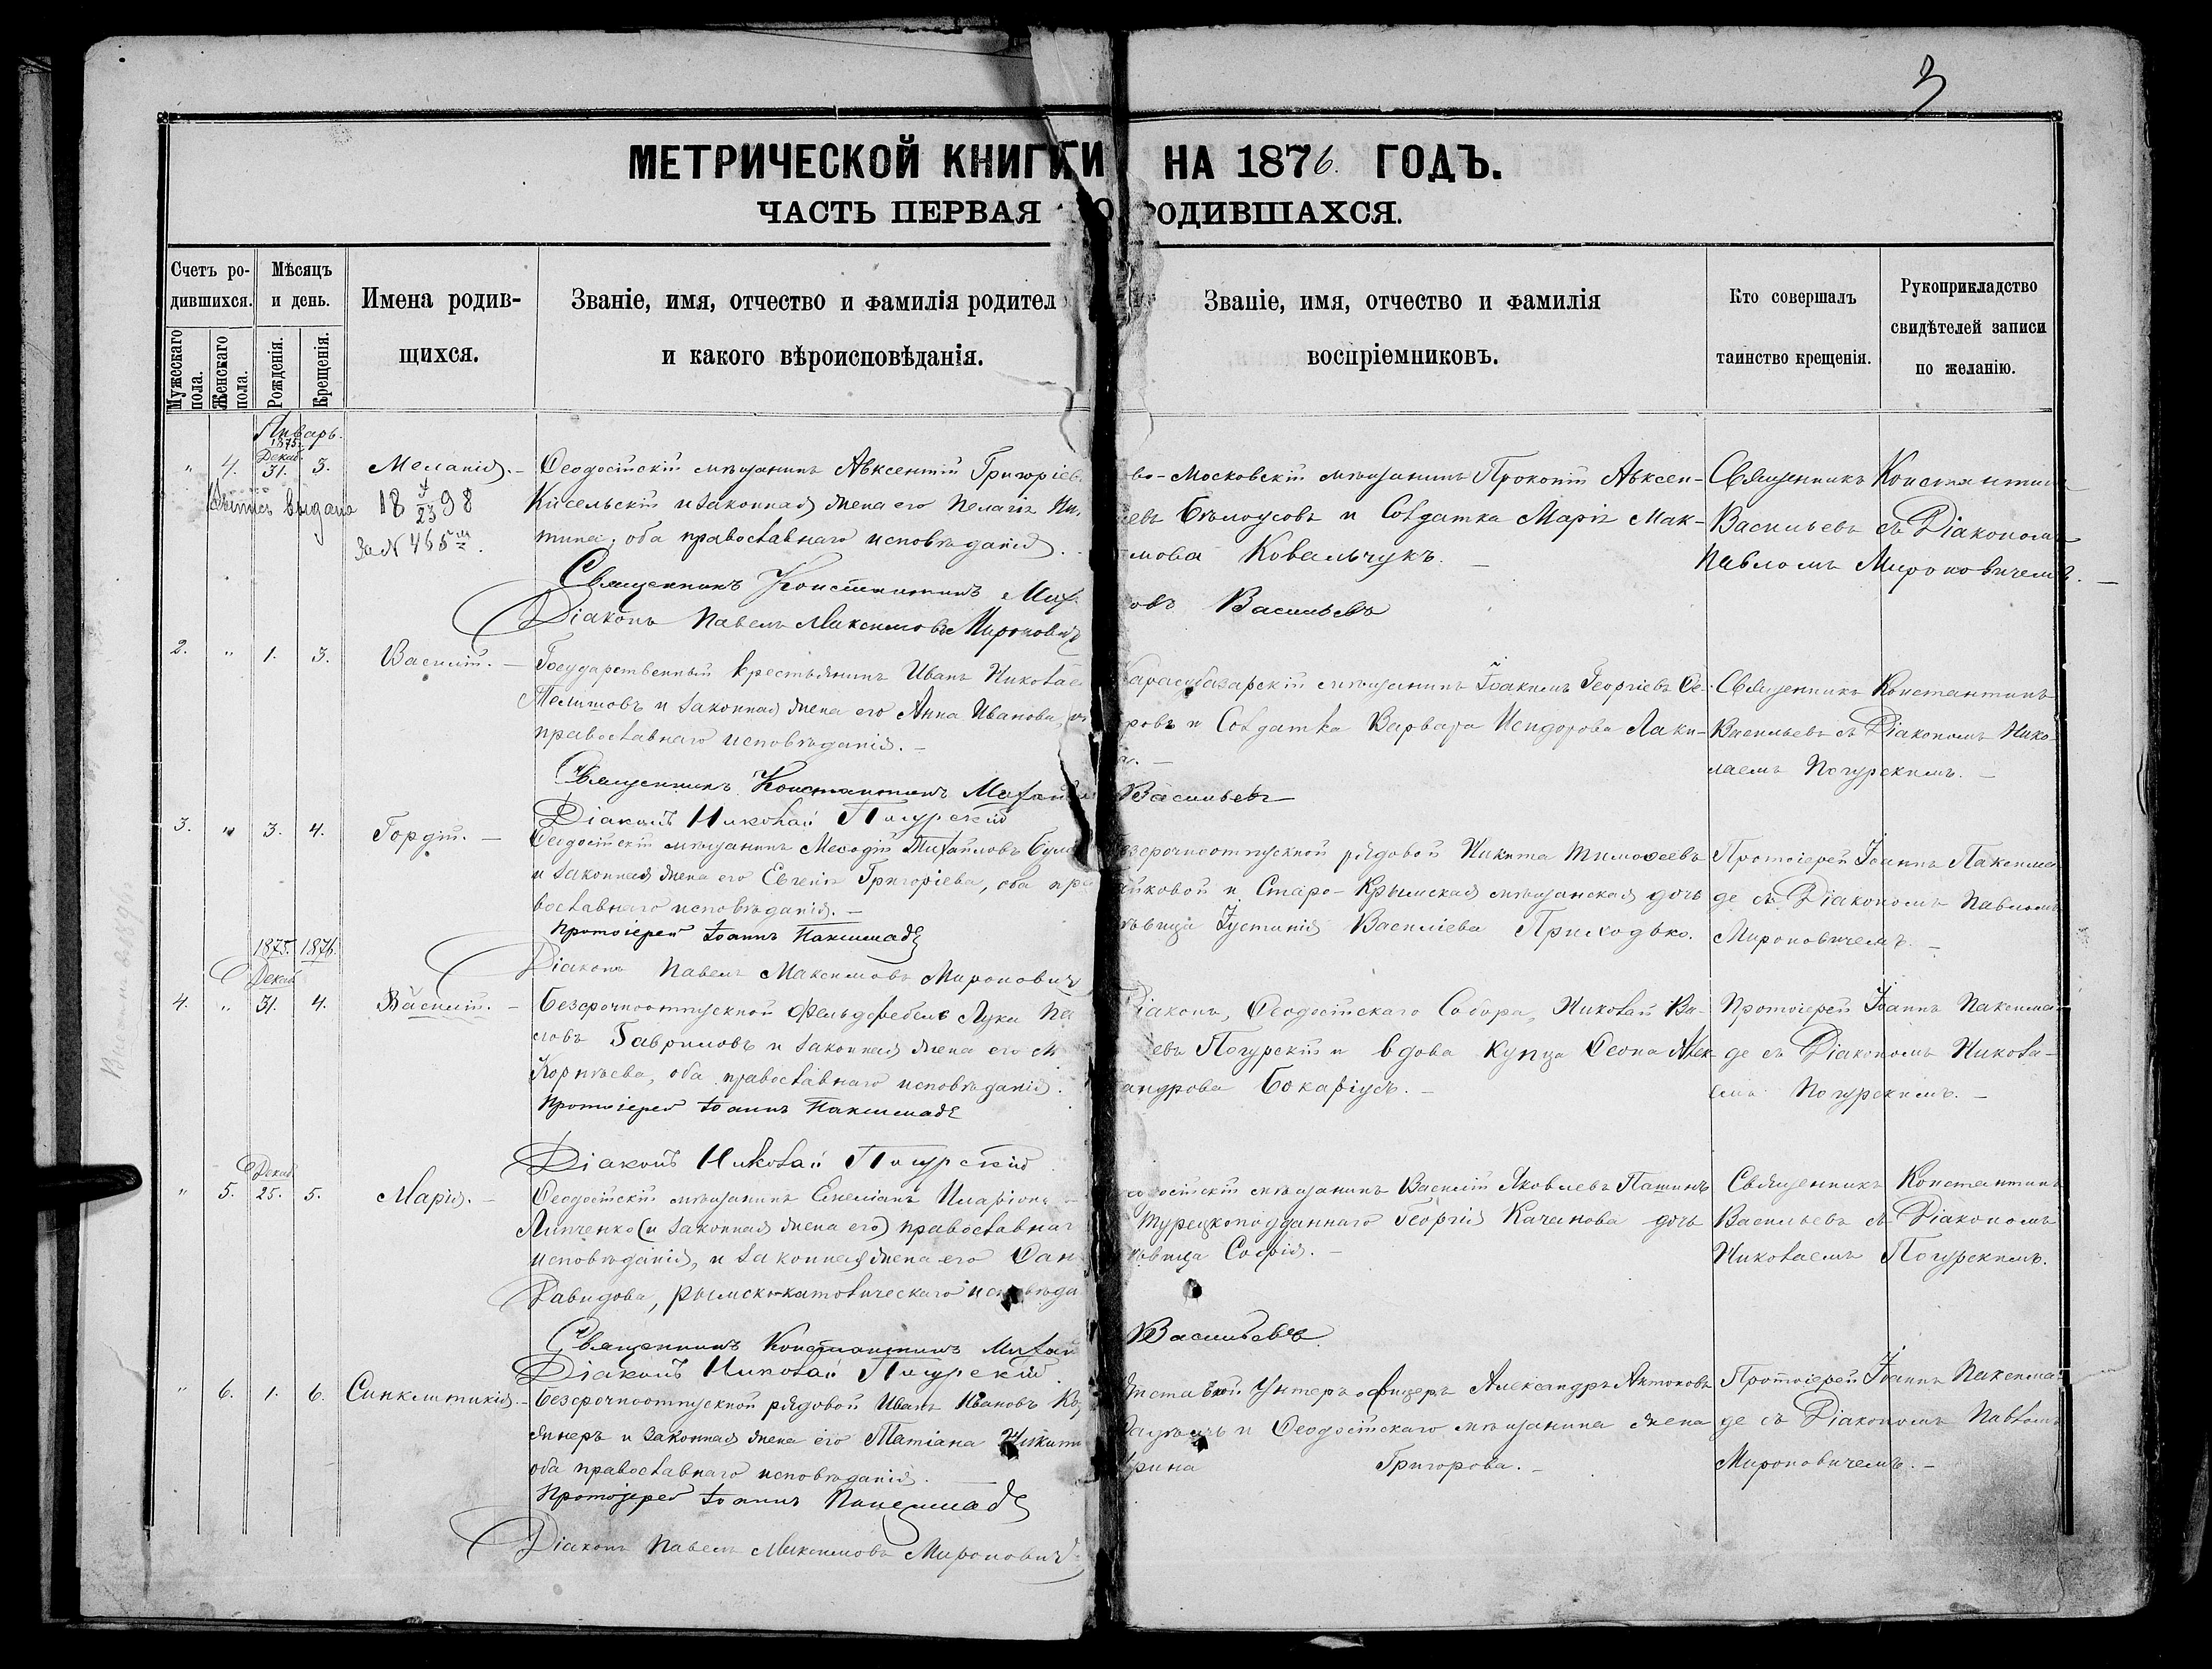 3
МЕТРИЧЕСКОЙ КНИГИ НА 1876. ГОДЪ.
ЧАСТЬ ПЕРВАЯ О РОДИВШАХСЯ.
Счетъ ро-
дившихся.
Мужескаго пола.
Женскаго пола.
Мѣсяцъ
и день.
Рожденія.
Крещенія.
Имена родив-
щихся.
Званіе, имя, отчество и фамилія родител
и какого вѣроисповѣданія.
Званіе, имя, отчество и фамилія
воспріемниковъ.
Кто совершалъ
таинство крещенія.
Рукоприкладство
свидѣтелей записи
по желанію.
Январь.
1875.
Декаб.
" 4. 31. 3. Меланія.
выдана 18 98
За № 465
Ѳеодосійскій мѣщанинъ Авксентій Григоріев
Кисельскій и законная жена его Пелагія
оба православнаго исповѣданія.
Священникъ Константинъ Мих
Діаконъ Павелъ Максимовъ Мироновичъ
во-Московскій мѣщанинъ Прокопій Авксен-
евъ Бѣлоусовъ и Солдатка Марія Мак-
мова Ковальчукъ.
овъ Васильевъ
Священникъ Константинъ
Васильевъ съ Діакономъ
Павломъ Мироновичемъ.
2. " 1. 3. Василій.
Государственный крестьянинъ Иванъ Никола
и законная жена его Анна Иванова,
православнаго исповѣданія.
Священникъ Константинъ Михай
Діаконъ Николай Погурскій
Карасубазарскій мѣщанинъ Іоакимъ Георгіевъ Ѳе-
ровъ и Солдатка Варвара Исидорова Лаки-
Васильевъ
Священникъ Константинъ
Васильевъ съ Діакономъ Нико-
лаемъ Погурскимъ.
3. " 3. 4. Гордій.
Ѳеодосійскій мѣщанинъ Меѳодій Михайловъ
и законная жена его Евгенія Григоріева, оба пра
вославнаго исповѣданія.
Протоіерей Іоаннъ Накшмаде
Діаконъ Павелъ Максимовъ Мироновичъ
езсрочноотпускной рядовой Никита Тимоѳеевъ
йковой и Старо-Крымская мѣщанская дочь
ѣвица Іустинія Василіева Приходько.
Протоіерей Іоаннъ
де съ Діакономъ Павломъ
Мироновичемъ.
1875. 1876.
Декаб
4. " 31. 4. Василій.
Безсрочноотпускной Фельдфебель Лука Па
ловъ Гавриловъ и законная жена его М
Корнѣева, оба православнаго исповѣданія.
Протоіерей Іоаннъ Накшмаде
Діаконъ Николай Погурскій
Діаконъ, Ѳеодосійскаго Собора, Николай Ва-
евъ Погурскій и вдова купца Ѳеона Алек-
андрова Бокаріусъ.
Протоіерей Іоаннъ
де съ Діакономъ Никола-
емъ Погурскимъ.
Декаб
" 5. 25. 5. Марія.
Ѳеодосійскій мѣщанинъ Емеліанъ Иларіон
Липченко (и законная жена его) православнаг
исповѣданія, и законная жена его
Давидова, рымско-католическаго исповѣда
Священникъ Константинъ Михай
Діаконъ Николай Погурскій.
одосійскій мѣщанинъ Василій Яковлевъ Пашинъ
Турецкоподданнаго Георгія Качанова дочь
ѣвица Софія.
Васильевъ
Священникъ Константинъ
Васильевъ съ Діакономъ
Николаемъ Погурскимъ.
" 6. 1. 6. Синклитикія.
Безсрочноотпускной рядовой Иванъ Ивановъ
и законная жена его Татіана Никити
оба православнаго исповѣданія.
Протоіерей Іоаннъ Накшмаде
Діаконъ Павелъ Максимовъ Мироновичъ
Унтеръ офицеръ Александръ Антоновъ
и Ѳеодосійскаго мѣщанина жена
рина Григорова.
Протоіерей Іоаннъ
де съ Діакономъ Павломъ
Мироновичемъ.